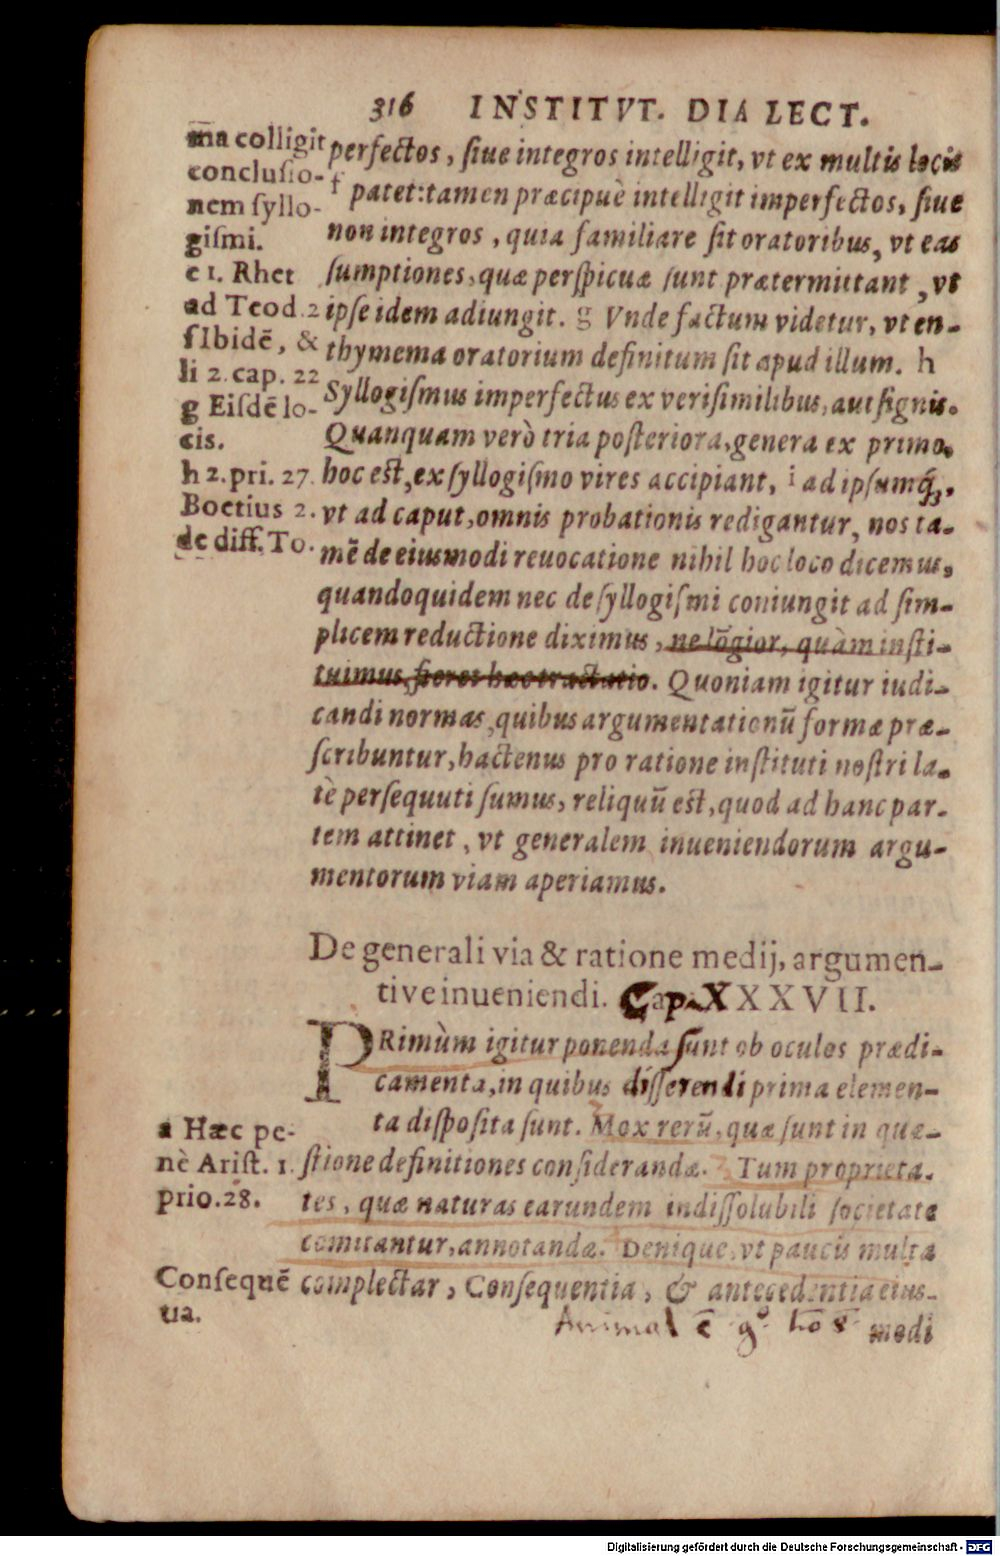 316 INSTITVT. DIALECT.
ma colligit
conclusio-
nem syllo-
gismi.
e 1. Rhet
ad Teod. 2
f Ibidē, &
li 2. cap. 22
g Eisdē lo-
cis.
h 2. pri. 27.
Boetius 2.
de diff. To.
perfectos, siue integros intelligit, vt ex multis locis
f patet: tamen præcipuè intelligit imperfectos, siue
non integros, quia familiare sit oratoribus, vt eas
sumptiones, quæ perspicuæ sunt prætermittant, vt
ipse idem adiungit. g Vnde factum videtur, vt en-
thymema oratorium definitum sit apud illum. h
Syllogismus imperfectus ex verisimilibus, aut signis.
Quanquam verò tria posteriora, genera ex primo,
hoc est, ex syllogismo vires accipiant, i ad ipsumq́3,
vt ad caput, omnis probationis redigantur, nos ta-
mē de eiusmodi reuocatione nihil hoc loco dicemus,
quandoquidem nec de syllogismi coniungit ad sim-
plicem reductione diximus, ne lōgior, quàm insti-
tuimus, fieret hæc tractatio. Quoniam igitur iudi-
candi normas, quibus argumentationū formæ præ-
scribuntur, hactenus pro ratione instituti nostri la-
tè persequuti sumus, reliquū est, quod ad hanc par-
tem attinet, vt generalem inueniendorum argu-
mentorum viam aperiamus.
De generali via & ratione medij, argumen-
tive inueniendi. Cap. XXXVII.
PRimùm igitur ponenda sunt ob oculos prædi-
camenta, in quibus disserendi prima elemen-
ta disposita sunt. Mox rerū, quæ sunt in quæ-
stione definitiones considerandæ. Tum proprieta-
tes, quæ naturas earundem indissolubili societate
comitantur, annotandæ. Denique, vt paucis multa
complectar, Consequentia, & antecedentia eius-
modi
a Hæc pe-
nè Arist. 1.
prio. 28.
Consequē
tia.
Animal ē g° hō
Digitalisierung gefördert durch die Deutsche Forschungsgemeinschaft - DFG